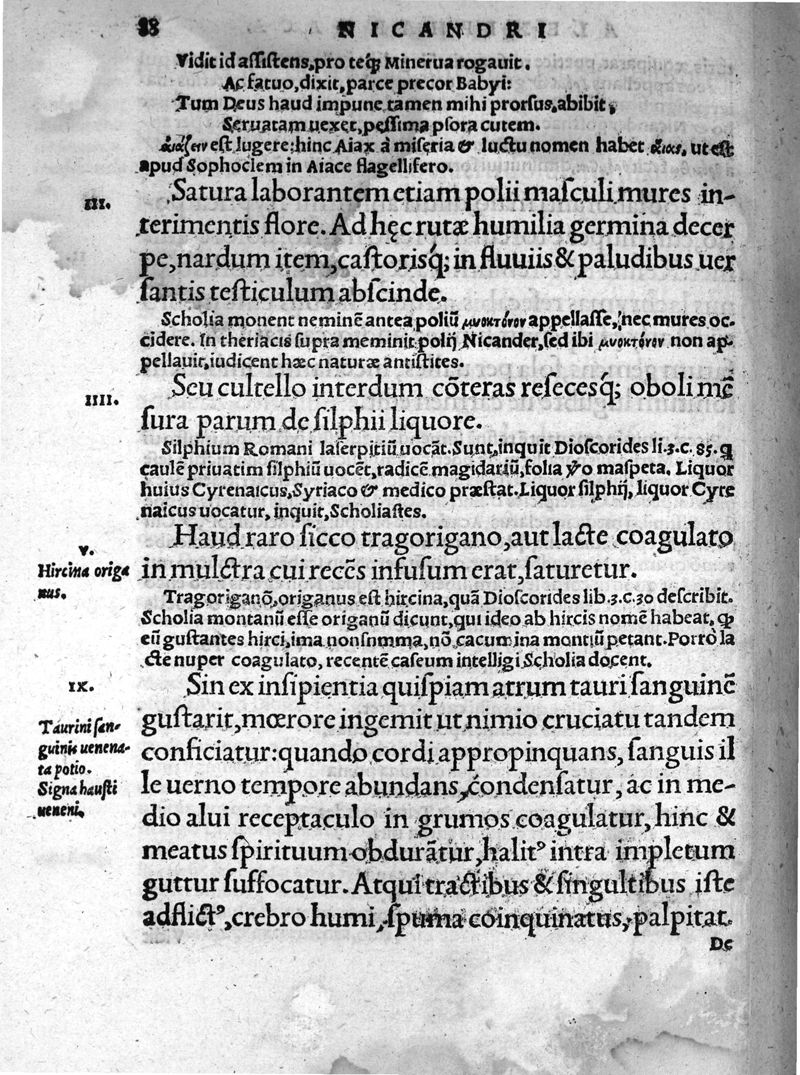 88 NICANDRI
Vidit id aſſiſtens, pro teq́ꝫ Minerua rogauit.
Ac fatuo, dixit, parce precor Babyi:
Tum Deus haud impune tamen mihi prorſus, abibit,
Seruatam uexet, peſſima pſora cutem.
eſt lugere: hinc Aiax à miſeria & luctu nomen habet αἴας, ut eſt
apud Sophoclem in Aiace flagellifero.
III.
Satura laborantem etiam polii maſculi mures in-
terimentis flore. Ad hęc rutæ humilia germina decer
pe, nardum item, caſtorisq́; in fluuiis & paludibus uer
ſantis teſticulum abſcinde.
Scholia monent neminē antea poliū μυοκτόνον appellaſſe, nec mures oc-
cidere. In theriacis ſupra meminit polij Nicander, ſed ibi μυοκτόνον non ap-
pellauit, iudicent hæc naturæ antiſtites.
IIII.
Seu cultello interdum cōteras reſecesq́; oboli mē
ſura parum de ſilphii liquore.
Silphium Romani laſerpitiū uocāt. Sunt, inquit Dioſcorides li. 3. c. 85. ꝗ
caulē priuatim ſilphiū uocēt, radicē magidariū, folia ꝟo maſpeta. Liquor
huius Cyrenaicus, Syriaco & medico præſtat. Liquor ſilphij, liquor Cyre
naicus uocatur, inquit, Scholiaſtes.
V.
Haud raro ſicco tragorigano, aut lacte coagulato
Hircina origa
nus.
in mulctra cui recēs infuſum erat, ſaturetur.
Tragoriganō, origanus eſt hircina, quā Dioſcorides lib. 3. c. 30 deſcribit.
Scholia montanū eſſe origanū dicunt, qui ideo ab hircis nomē habeat, ꝙ
eū guſtantes hirci, ima non ſnmma, nō cacumina montiū petant. Porrò la
cte nuper coagulato, recentē caſeum intelligi Scholia docent.
IX.
Sin ex inſipientia quiſpiam atrum tauri ſanguinē
Taurini ſan-
guinis uenena-
ta potio.
Signa hauſti
ueneni.
guſtarit, mœrore ingemit ut nimio cruciatu tandem
conficiatur: quando cordi appropinquans, ſanguis il
le uerno tempore abundans, cōdenſatur, ac in me-
dio alui receptaculo in grumos coagulatur, hinc &
meatus ſpirituum obdurātur, halitꝰ intra impletum
guttur ſuffocatur. Atqui tractibus & ſingultibus iſte
adflictꝰ, crebro humi, ſpuma coinquinatus, palpitat.
De